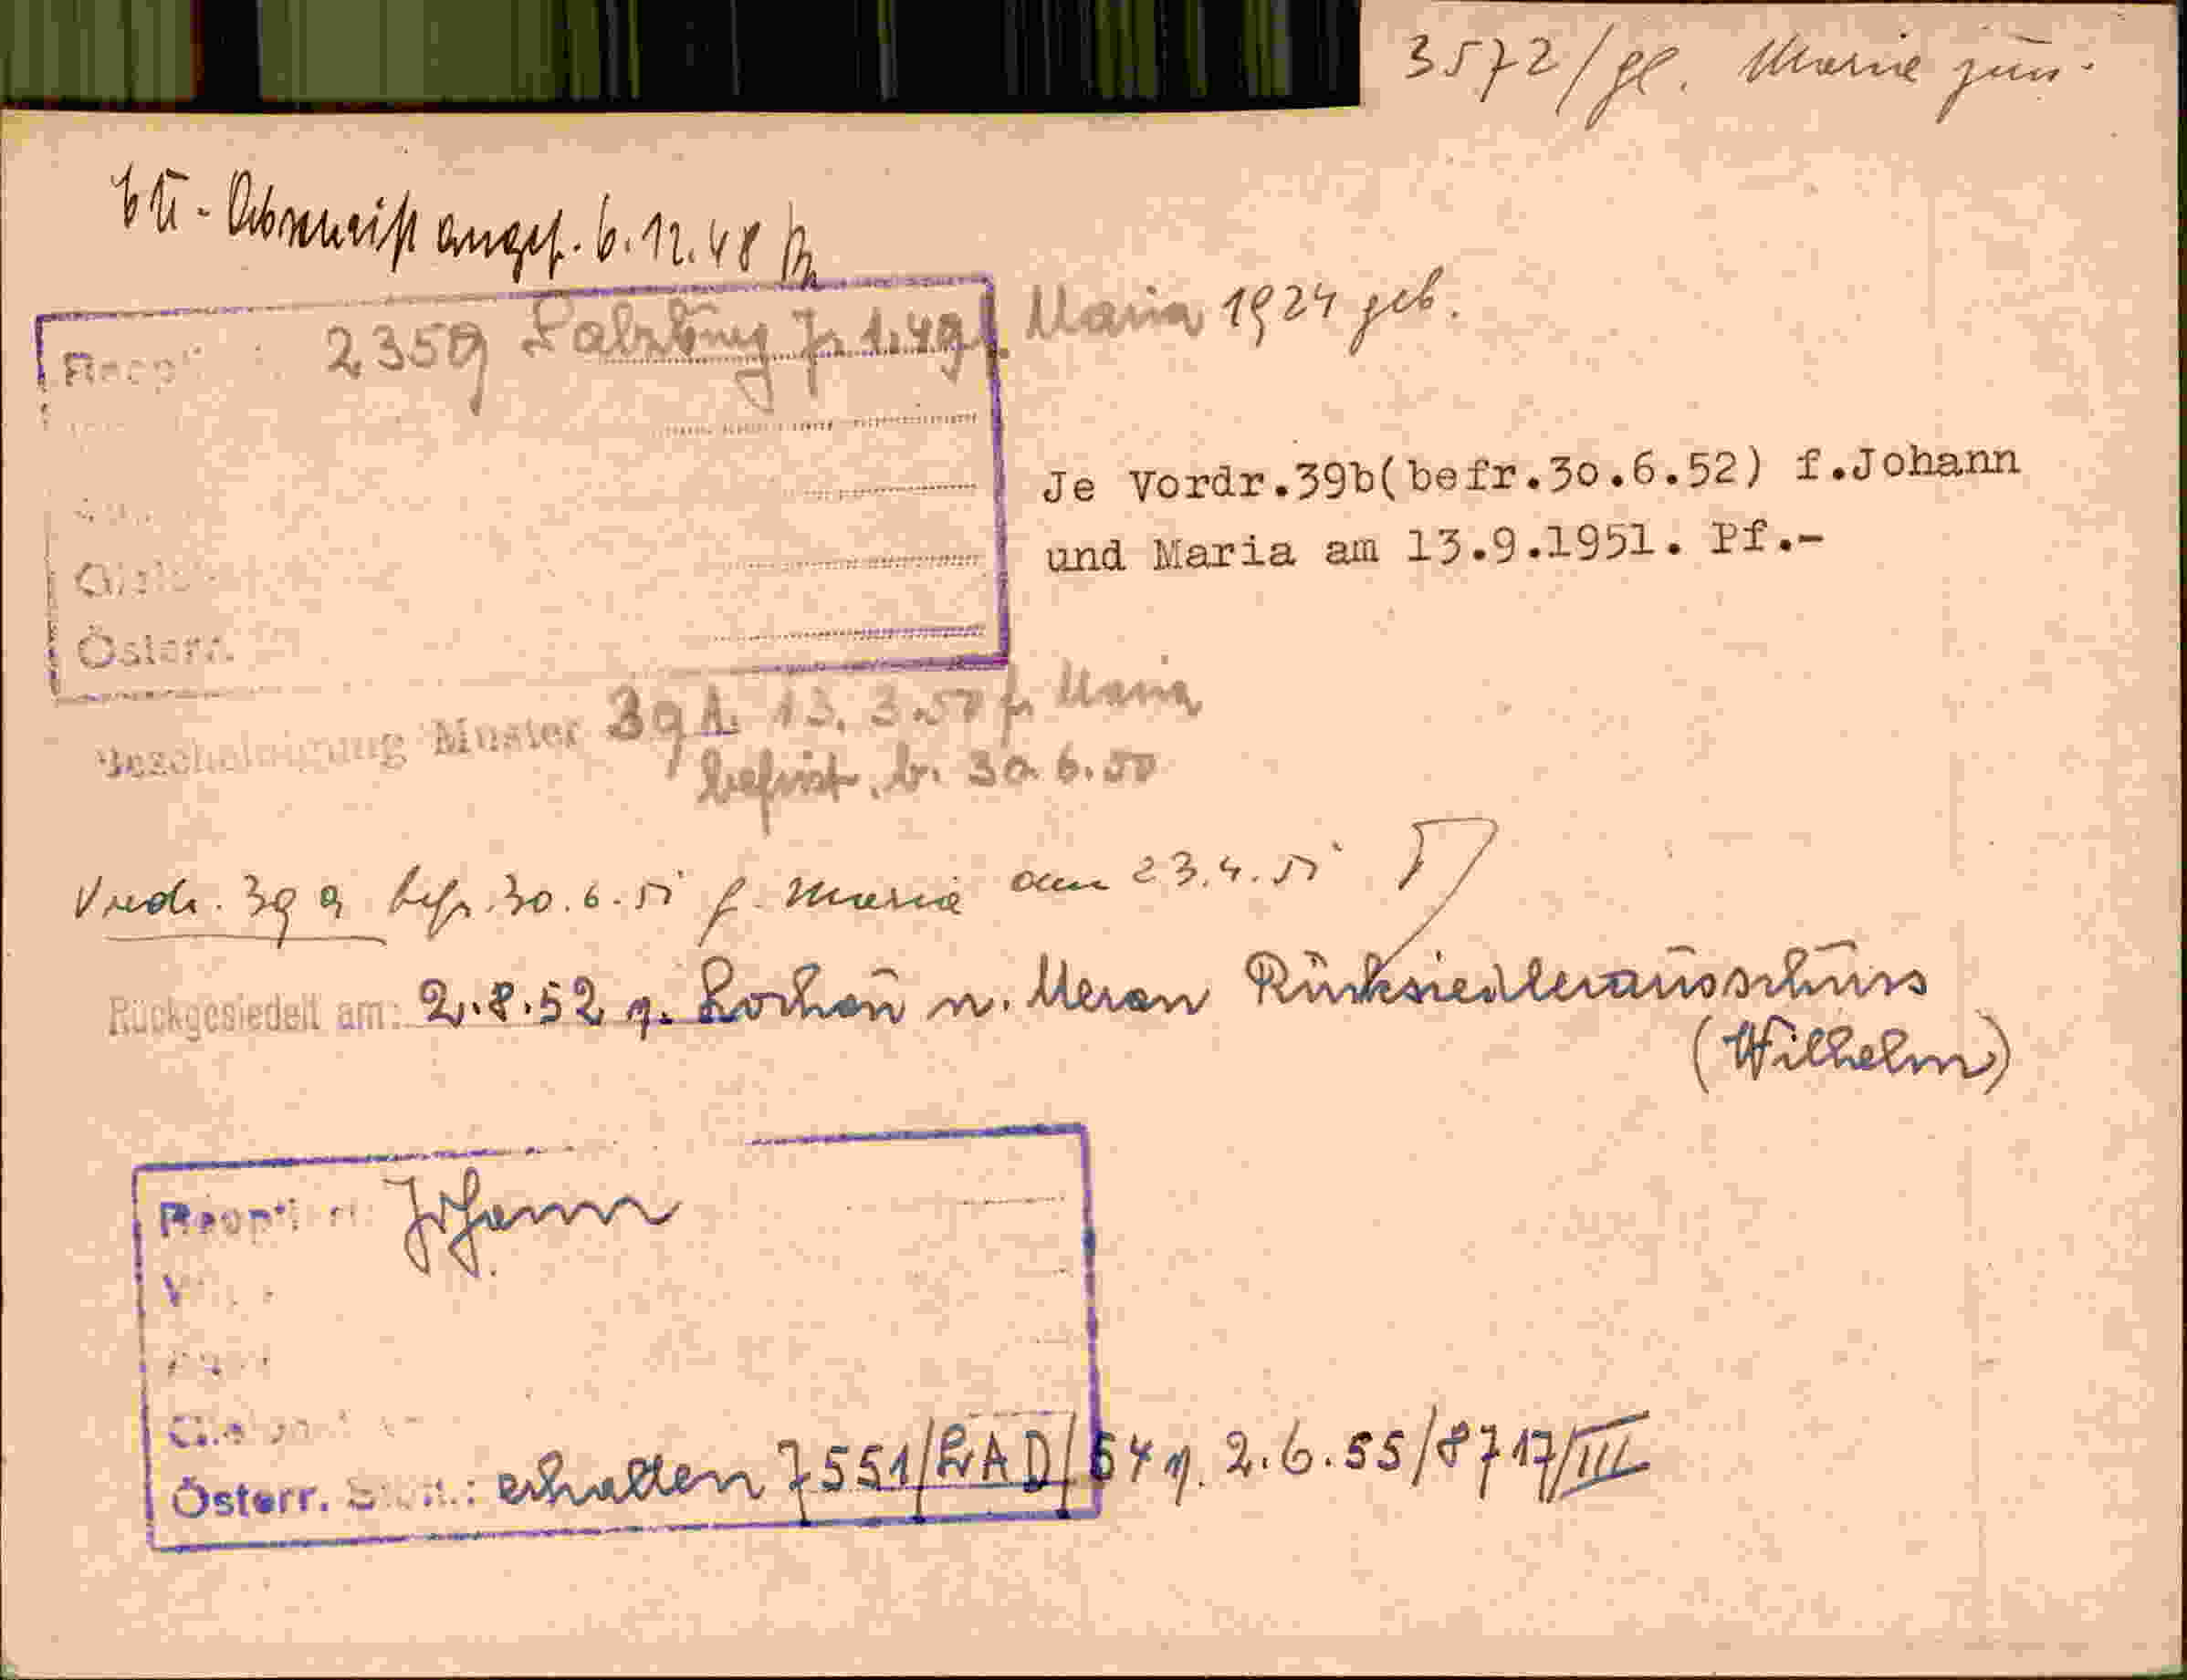 3572/gl. Marie jun.
angef. 6.12.48
2359 Salzburg 1.49 f. Maria 1924 geb.
Je Vordr.39b(befr.30.6.52) f.Johann
und Maria am 13.9.1951. Pf.-
Österr.
Bescheinigung Muster 39 13.3.50 f. Maria
befrist. b. 30.6.50
Vordr. 39a befr. 30.6.51 f. Maria am 23.4.51
Rückgesiedelt am: 2.8.52 n. Meran Rücksiedlerausschuss
(Wilhelm)
Johann
Österr. erhalten 7551/LAD/54 v. 2.6.55/8717/III